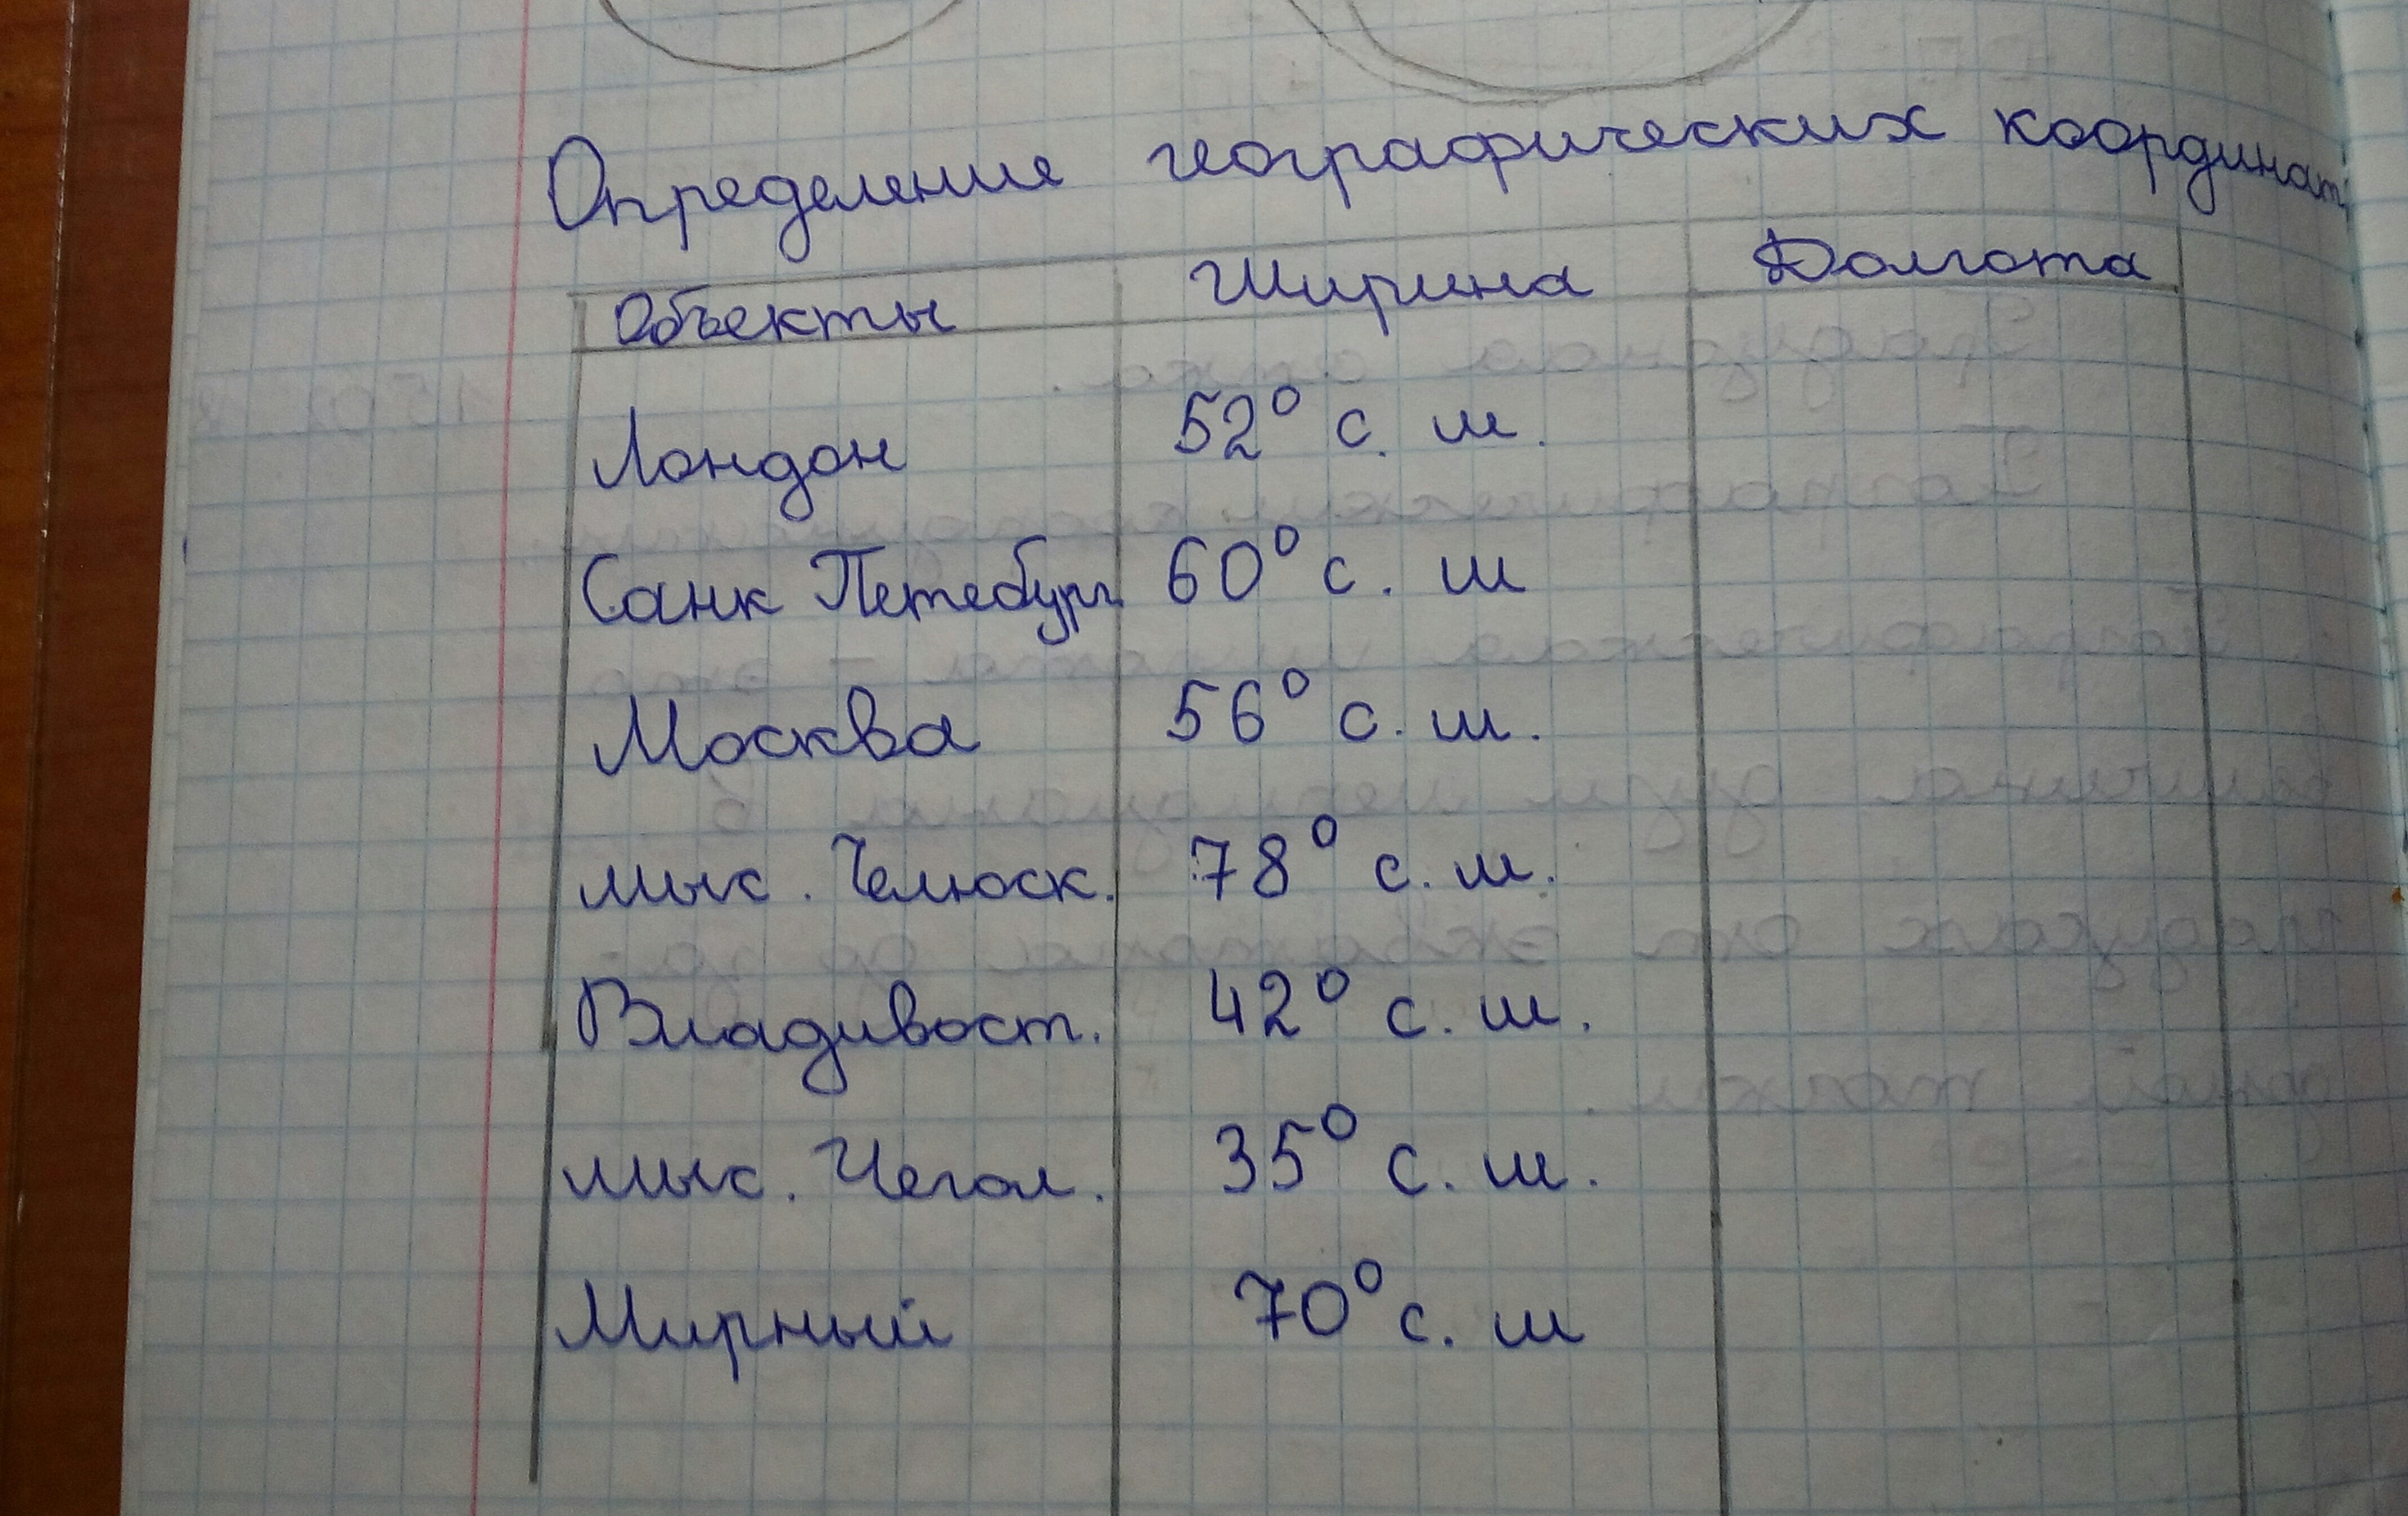 Определение географических координат
Объекты Ширина Долгота
Лондон 52° с. ш.
Санк Петебург 60° с. ш
Москва 56° с. ш.
мыс. Челюск. 78° с. ш.
Владивост. 42° с. ш.
мыс. Чегол. 35° с. ш.
Мирный 70° с. ш